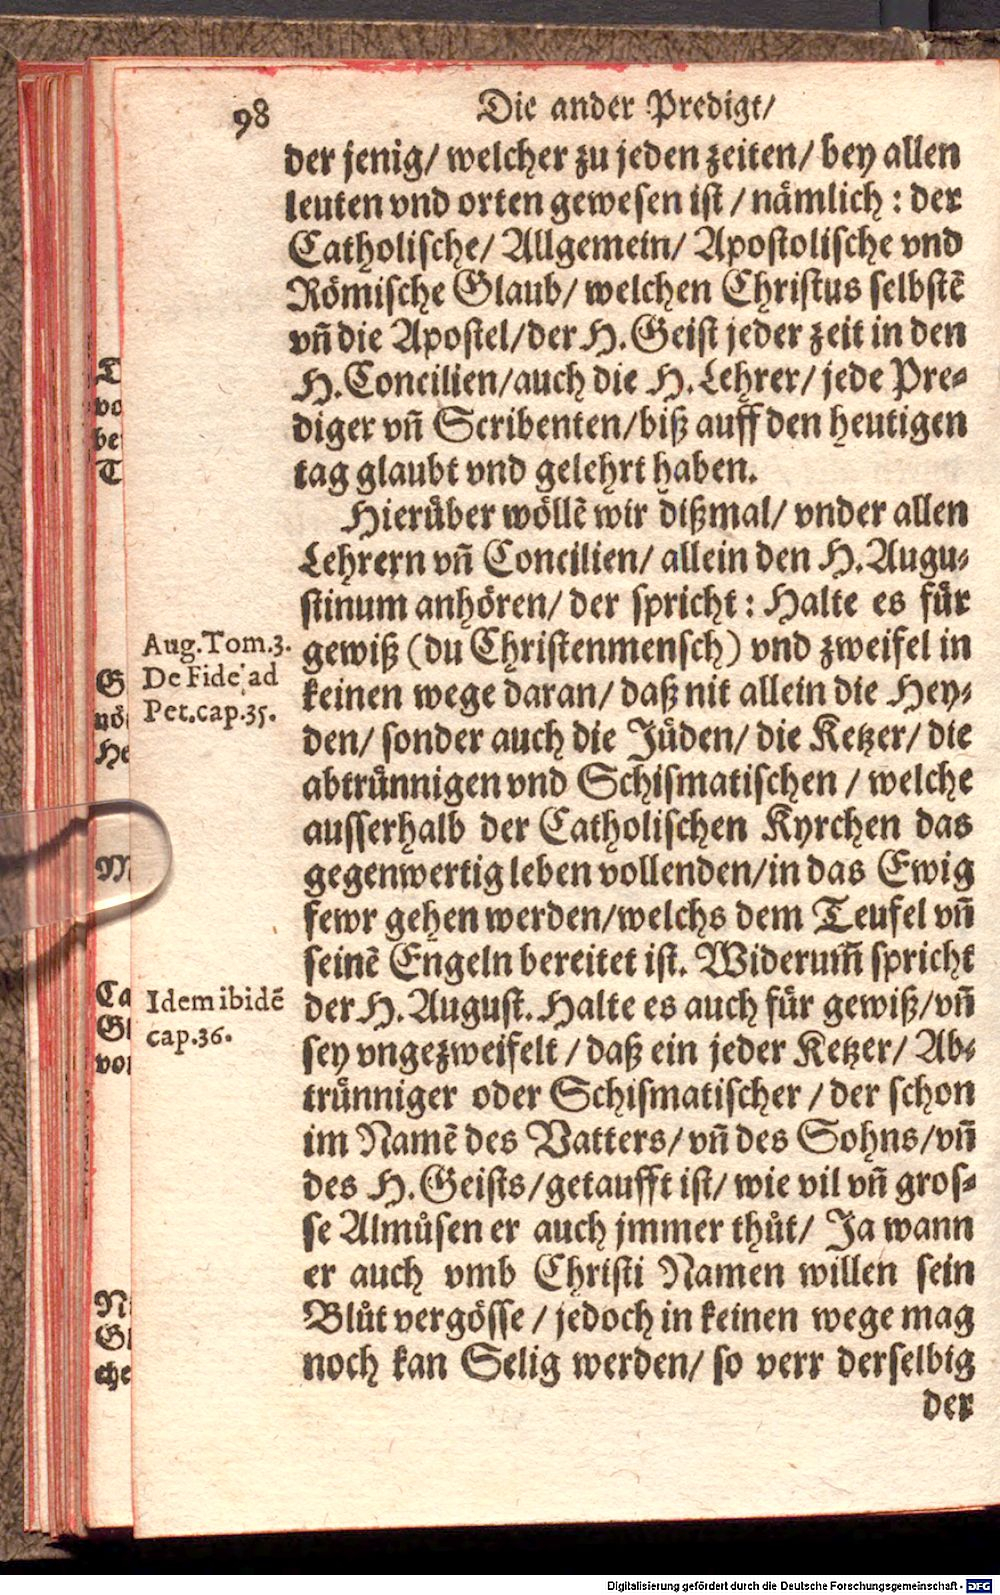 98 Die ander Predigt/
der jenig/ welcher zu jeden zeiten/ bey allen
leuten vnd orten gewesen ist / nämlich : der
Catholische/ Allgemein/ Apostolische vnd
Römische Glaub/ welchen Christus selbstẽ
vñ die Apostel/der H. Geist jeder zeit in den
H. Concilien/auch die H. Lehrer/ jede Pre-
diger vñ Scribenten/biß auff den heutigen
tag glaubt vnd gelehrt haben.
Hierüber wöllẽ wir dißmal/ vnder allen
Lehrern vñ Concilien/ allein den H. Augu-
stinum anhören/ der spricht : Halte es für
Aug. Tom. 3.
De Fide ad
Pet. cap. 35.
gewiß (du Christenmensch) vnd zweifel in
keinen wege daran/ daß nit allein die Hey-
den/ sonder auch die Jüden/ die Ketzer/ die
abtrünnigen vnd Schismatischen / welche
ausserhalb der Catholischen Kyrchen das
gegenwertig leben vollenden/in das Ewig
fewr gehen werden/welchs dem Teufel vñ
seinẽ Engeln bereitet ist. Widerum̃ spricht
Idem ibidẽ
cap. 36.
der H. August. Halte es auch für gewiß/vñ
sey vngezweifelt / daß ein jeder Ketzer/ Ab-
trünniger oder Schismatischer / der schon
im Namẽ des Vatters/ vñ des Sohns/vñ
des H. Geists/getaufft ist/ wie vil vñ gros-
se Almůsen er auch jmmer thůt/ Ja wann
er auch vmb Christi Namen willen sein
Blůt vergösse / jedoch in keinen wege mag
noch kan Selig werden/ so verr derselbig
der
Digitalisierung gefördert durch die Deutsche Forschungsgemeinschaft - DFG